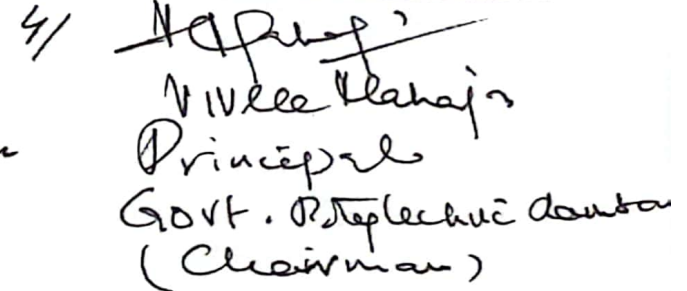 4/
Vivek Mahajan
Principal
Govt. Polytechnic
(Chairman)